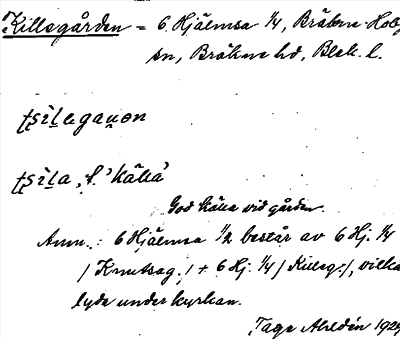 Killsgården = 6 Hjälmsa 1/4, Bräkne-Hoby
sn, Bräkne hd, Blek. l.
ʈʂìlegau̯ən
ʈʂìla, f. 'källa'
God källa vid gården.
Anm.: 6 Hjälmsa 1/2 består av 6 Hj. 1/4
/Knutsag./ + 6 Hj. 1/4 /Killsg./, vilka
lyda under kyrkan.
Tage Ahldén 192